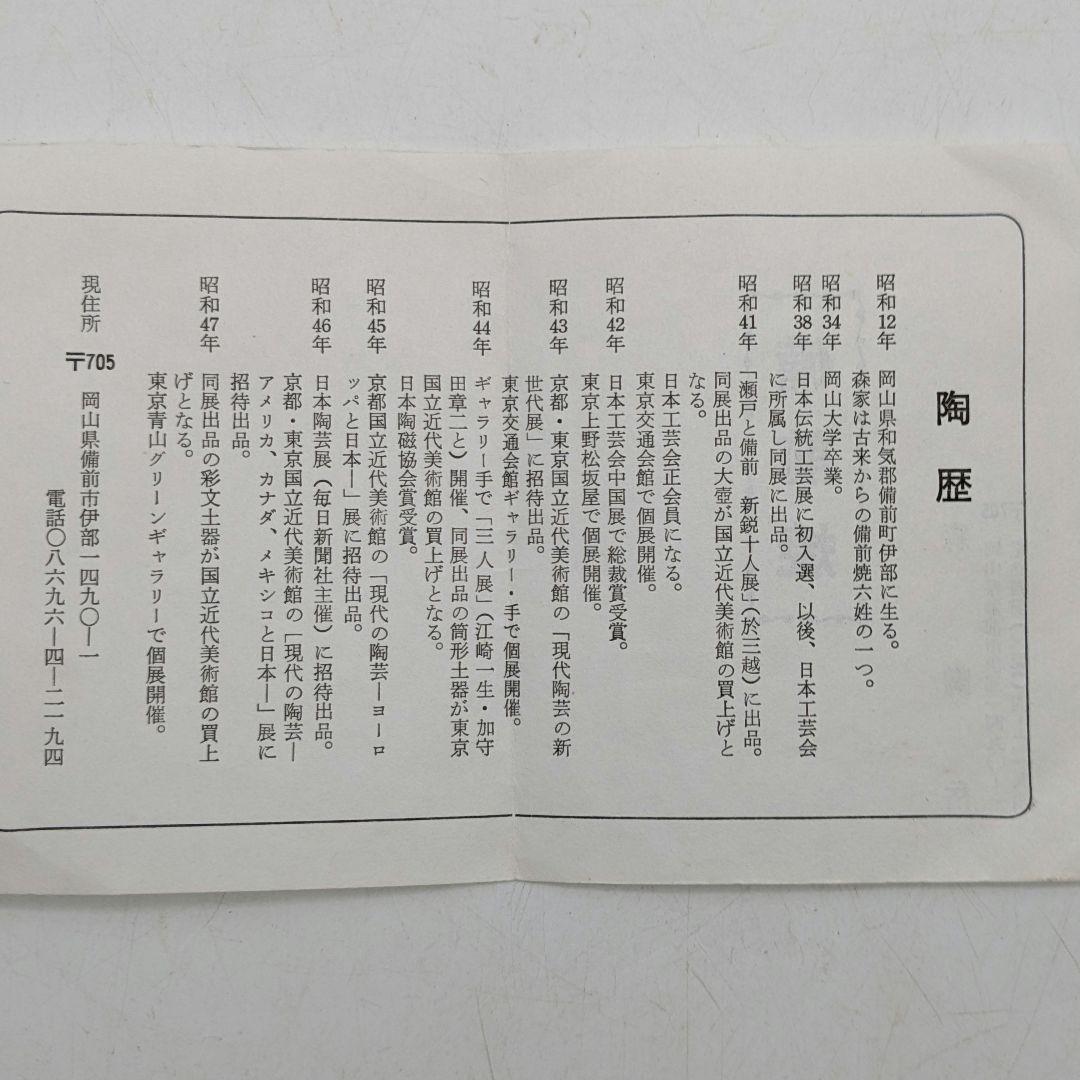 陶歴
昭和12年　岡山県和気郡備前町伊部に生る。
森家は古来からの備前焼六姓の一つ。
昭和34年　岡山大学卒業。
昭和38年　日本伝統工芸展に初入選、以後、日本工芸会
に所属し同展に出品。
昭和41年　「瀬戸と備前　新鋭十人展」（於三越）に出品。
同展出品の大壺が国立近代美術館の買上げと
なる。
日本工芸会正会員になる。
東京交通会館で個展開催。
昭和42年　日本工芸会中国展で総裁賞受賞。
東京上野松坂屋で個展開催。
昭和43年　京都・東京国立近代美術館の「現代陶芸の新
世代展」に招待出品。
東京交通会館ギャラリー・手で個展開催。
昭和44年　ギャラリー手で「三人展」（江崎一生・加守
田章二と）開催、同展出品の筒形土器が東京
国立近代美術館の買上げとなる。
日本陶磁協会賞受賞。
昭和45年　京都国立近代美術館の「現代の陶芸―ヨーロ
ッパと日本―」展に招待出品。
昭和46年　日本陶芸展（毎日新聞社主催）に招待出品。
京都・東京国立近代美術館の［現代の陶芸―
アメリカ、カナダ、メキシコと日本―」展に
招待出品。
昭和47年　同展出品の彩文土器が国立近代美術館の買上
げとなる。
東京青山グリーンギャラリーで個展開催。
現住所　〒705　岡山県備前市伊部一四九〇―一
電話〇八六九六―四―二一九四